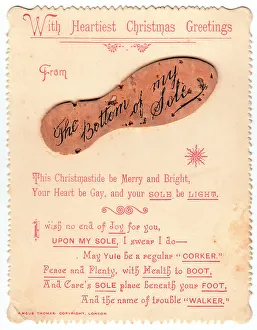 With Heartiest Christmas Greetings
From
The Bottom of my
Sole.
This Christmastide be Merry and Bright,
Your Heart be Gay, and your SOLE be LIGHT.
I wish no end of joy for you,
UPON MY SOLE, I swear I do—
May Yule be a regular "CORKER."
Peace and Plenty, with Health to BOOT,
And Care's SOLE place beneath your FOOT,
And the name of trouble "WALKER."
ANGUS THOMAS. COPYRIGHT, LONDON